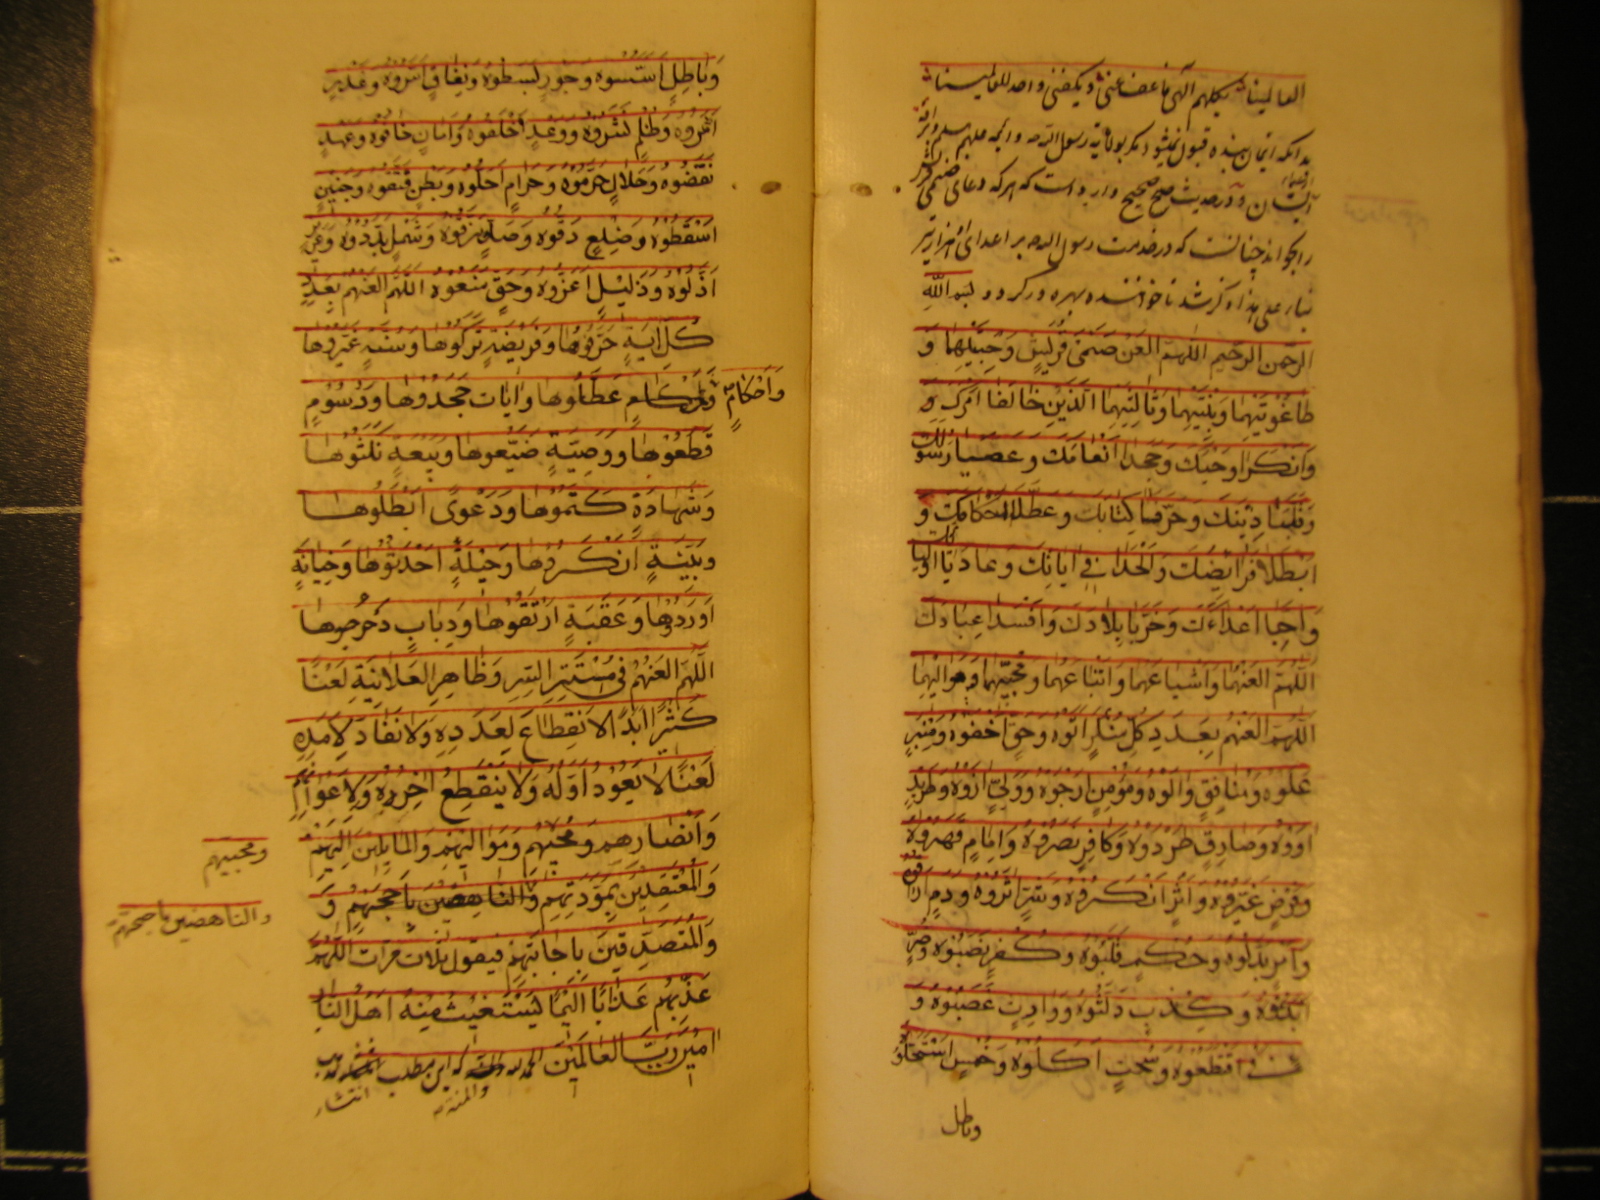 العالمینا
بدانکه ایمان بنده قبول نمیشود مکر بولایة رسول الله و ائمه علیهم
ایشان و در حدیث صحیح وارد است که هر که دعای صنمی
را بخواند چنانست که در خدمت رسول الله بر اعدای هزار تیر
بسم الله
الرحمن الرحیم اللهم العن صنمی قریش وجبتیها و
طاغوتیهما وبنتیهما الذین خالفا امرک و
وانکرا وحیک وجحدا انعامک وعصیا رسولک
وقلبا دینک وحرفا کتابک وعطلا احکامک و
ابطلا فرائضک والحدا فی ایاتک وعادیا اولیا
واحبا اعداءک وخربا بلادک وافسدا عبادک
اللهم العنهما واشیاعهما واتباعهما ومحبیهما وموالیهما
اللهم العنهم بعدد کل منکر اتوه وحق اخفوه ومنبر
علوه ومنافق والوه ومؤمن ارجوه وولی اذوه وطرید
اووه وصادق طردوه وکافر نصروه وامام قهروه
وفرض غیروه واثر انکروه وشر اثروه ودم اراقوه
وامر بدلوه وحکم قلبوه وکفر نصبوه
ابدعوه وکذب دلسوه وارث غصبوه و
فئ اقتطعوه وسحت اکلوه وخمس استحلوه
وباطل
وباطل اسسوه وجور بسطوه ونفاق اسروه وغدر
اضمروه وظلم نشروه ووعد اخلفوه وامان خانوه وعهد
نقضوه وحلال حرموه وحرام احلوه وبطن فتقوه وجنین
اسقطوه وضلع دقوه وصک مزقوه وشمل بددوه وعزیز
اذلوه وذلیل اعزوه وحق منعوه اللهم العنهم بعدد
کل ایة حرفوها وفریضة ترکوها وسنة غیروها
واحکام عطلوها وایات جحدوها ورسوم
واحکام
قطعوها ووصیة ضیعوها وبیعة نکثوها
وشهادة کتموها ودعوی ابطلوها
وبینة انکروها وحیلة احدثوها وخیانة
اوردوها وعقبة ارتقوها ودباب دحرجوها
اللهم العنهم فی مستتر السر وظاهر العلانیة لعنا
کثیرا ابدا لا انقطاع لعدده ولا نفاد لامده
لعنا لا یعود اوله ولا ینقطع اخره
وانصارهم ومحبیهم وموالیهم والمایلین الیهم
ومحبیهم
والمعتقدین بمودتهم والناهضین باحجتهم و
والناهضین باحجتهم
والمتصدقین باجابتهم فیقول ثلاث مرات اللهم
عذبهم عذابا الیما یستغیث منه اهل النار
امین رب العالمین الحمد لله که این مطلب
والمنة